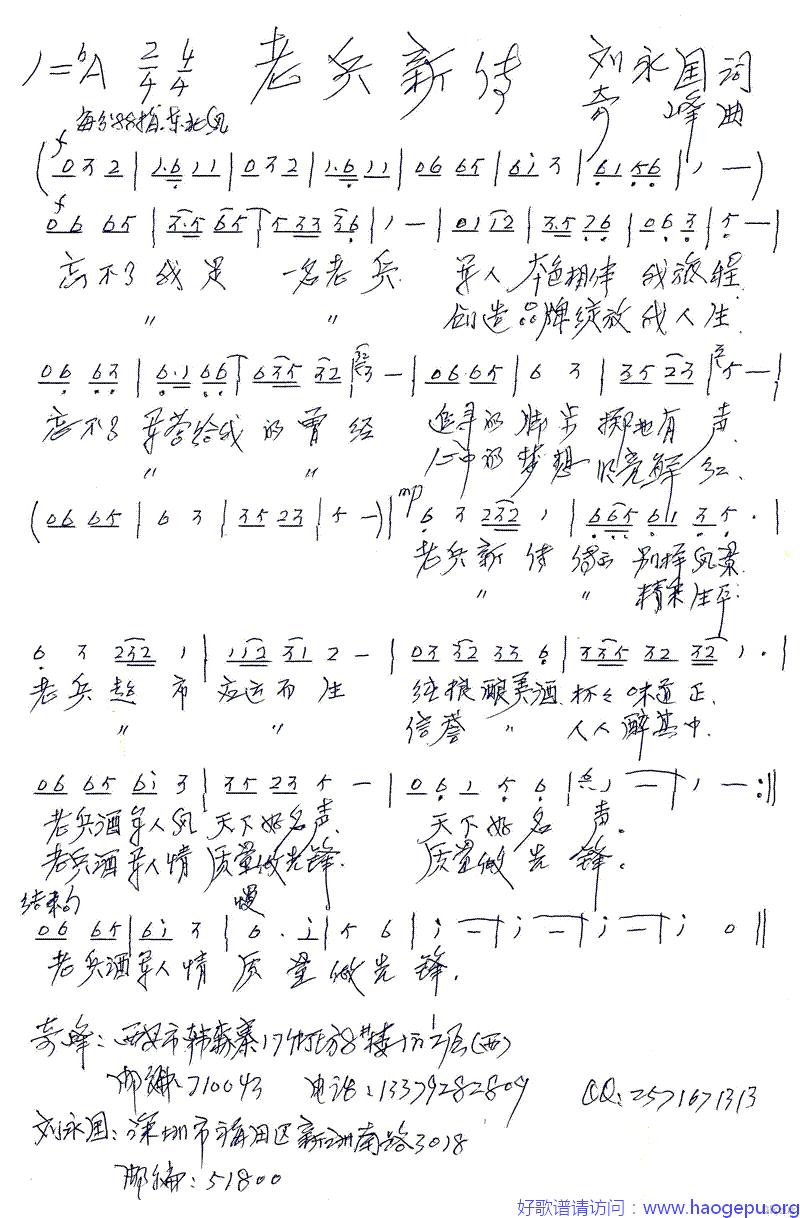 1=♭A 2/4 4/4 老兵新传 刘永国 词
每分88拍 东北风 奇峰 曲
f
(0 3 2 | 1·6 1 1 | 0 3 2 | 1·6 1 1 | 0 6 6 5 | 6 i 3 | 6 1 5 6 | 1 — )
f
0 6 6 5 | 3·5 6 5 | 5 3 3 3 6 | 1 — | 0 1 1 2 | 3·5 7 6 | 0 6 3 | 5 — |
忘不了 我是 一名老兵. 军人本色相伴我旅程.
〃 〃 创造品牌绽放我人生.
0 6 6 3 | 6·1 6 6 | 6 3 5 3 2 | 3 — | 0 6 6 5 | 6 3 | 3 5 2 3 | 5 — |
忘不了军营给我的曾经 追寻的脚步掷地有声.
〃 〃 心中的梦想 鲜红.
(0 6 6 5 | 6 3 | 3 5 2 3 | 5 —) | mp 6 3 2 3 2 1 | 6 6 5 6 1 3 5 · |
老兵新传 传 别样风景.
〃 〃 精采生平.
6 3 2 3 2 1 | 1 1 2 3 1 2 — | 0 3 3 2 3 3 6 | 3 3 5 3 2 3 2 1 · |
老兵超市应运而生 纯粮酿美酒 杯杯味道正.
〃 〃 信誉 〃 人人醉其中.
0 6 6 5 6 i 3 | 3 5 2 3 5 — | 0 6 1 5 6 | 1 — | 1 — :||
老兵酒军人风 天下好名声. 天下好名声。
老兵酒军人情 质量做先锋. 质量做先锋。
结束句 慢
0 6 6 5 | 6 i 3 | 6 · i | 5 6 | i — | i — | i — | i 0 ||
老兵酒军人情 质量做先锋.
奇峰:西安市韩森寨17街坊8#楼 (西)
邮编:710043 电话:13379282809 QQ:2571671313
刘永国:深圳市福田区新洲南路3018
邮编:51800
好歌谱请访问:www.haogepu.org